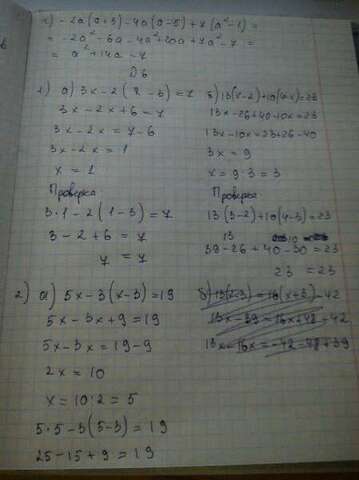 г) -2a(a+3)-4a(a-5)+7(a²-1)=
= -2a²-6a-4a²+20a+7a²-7=
= a²+14a-7
Д6
1) а) 3x-2(x-3)=7
3x-2x+6=7
3x-2x=7-6
3x-2x=1
x=1
Проверка
3·1-2(1-3)=7
3-2+6=7
7=7
б) 13(x-2)+10(4-x)=23
13x-26+40-10x=23
13x-10x=23+26-40
3x=9
x=9:3=3
Проверка
13(3-2)+10(4-3)=23
39-26+40-30=23
23=23
2) а) 5x-3(x-3)=19
5x-3x+9=19
5x-3x=19-9
2x=10
x=10:2=5
5·5-3(5-3)=19
25-15+9=19
б) 13(x-3)=16(x+3)-42
13x-39=16x+48-42
13x-16x=-42-48+39